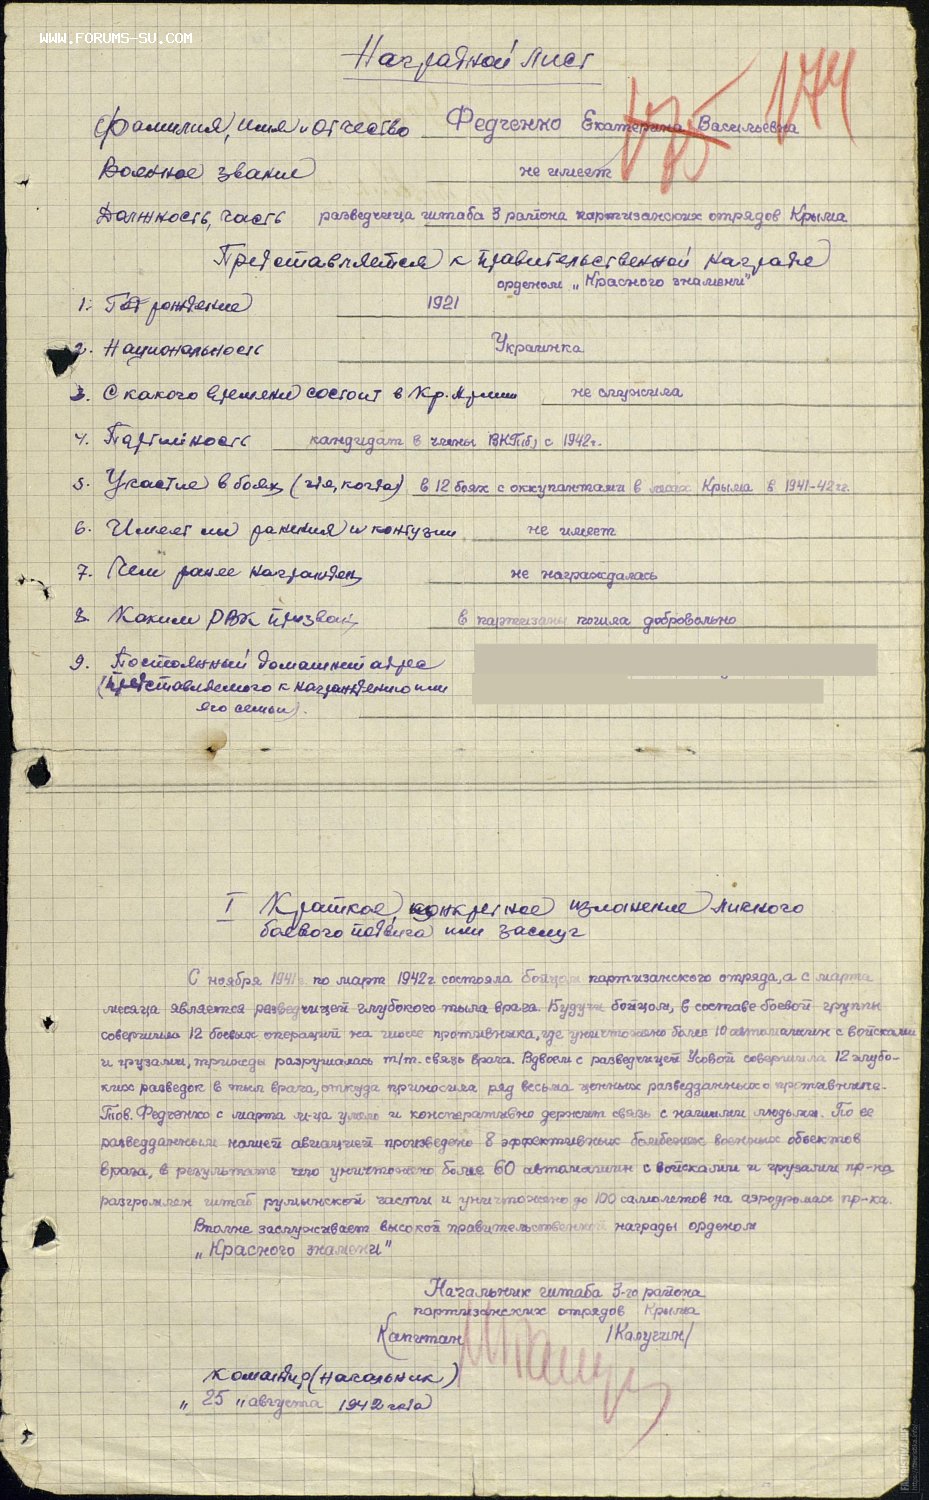 WWW.FORUMS-SU.COM
Наградной лист
175 174
Фамилия, имя и отчество Федченко Екатерина Васильевна
Военное звание не имеет
Должность, часть разведчица штаба 3 района партизанских отрядов Крыма
Представляется к правительственной награде
орденом „Красного знамени"
1. Год рождение 1921
2. Национальность Украинка
3. С какого времени состоит в Кр. Армии не служила
4. Партийность кандидат в члены ВКП(б) с 1942г.
5. Участие в боях (где, когда) в 12 боях с оккупантами в лесах Крыма в 1941-42гг.
6. Имеет ли ранения и контузии не имеет
7. Чем ранее награжден не награждалась
8. Каким РВК призван в партизаны пошла добровольно
9. Постоянный домашний адрес
(представляемого к награждению или
его семьи).
I Краткое, конкретное изложение личного
боевого подвига или заслуг
С ноября 1941г. по март 1942г состояла бойцом партизанского отряда, а с марта
месяца является разведчицей глубокого тыла врага. Будучи бойцом, в составе боевой группы
совершила 12 боевых операций на шоссе противника, где уничтожено более 10 автомашин с войсками
и грузами, трижды разрушалась т/т. связь врага. Вдвоем с разведчицей Усовой совершила 12 глубо-
ких разведок в тыл врага, откуда приносила ряд весьма ценных разведданных о противнике.
Тов. Федченко с марта м-ца умело и консперативно держит связь с нашими людьми. По ее
разведданным нашей авиацией произведено 8 эффективных бомбежек военных объектов
врага, в результате чего уничтожено более 60 автомашин с войсками и грузами пр-ка
разгромлен штаб румынской части и уничтожено до 100 самолетов на аэродромах пр-ка.
Вполне заслуживает высокой правительственной награды орденом
„Красного знамени"
Начальник штаба 3-го района
партизанских отрядов Крыма
Капитан /Калугин/
Командир (начальник)
„25 „ августа 1942 года